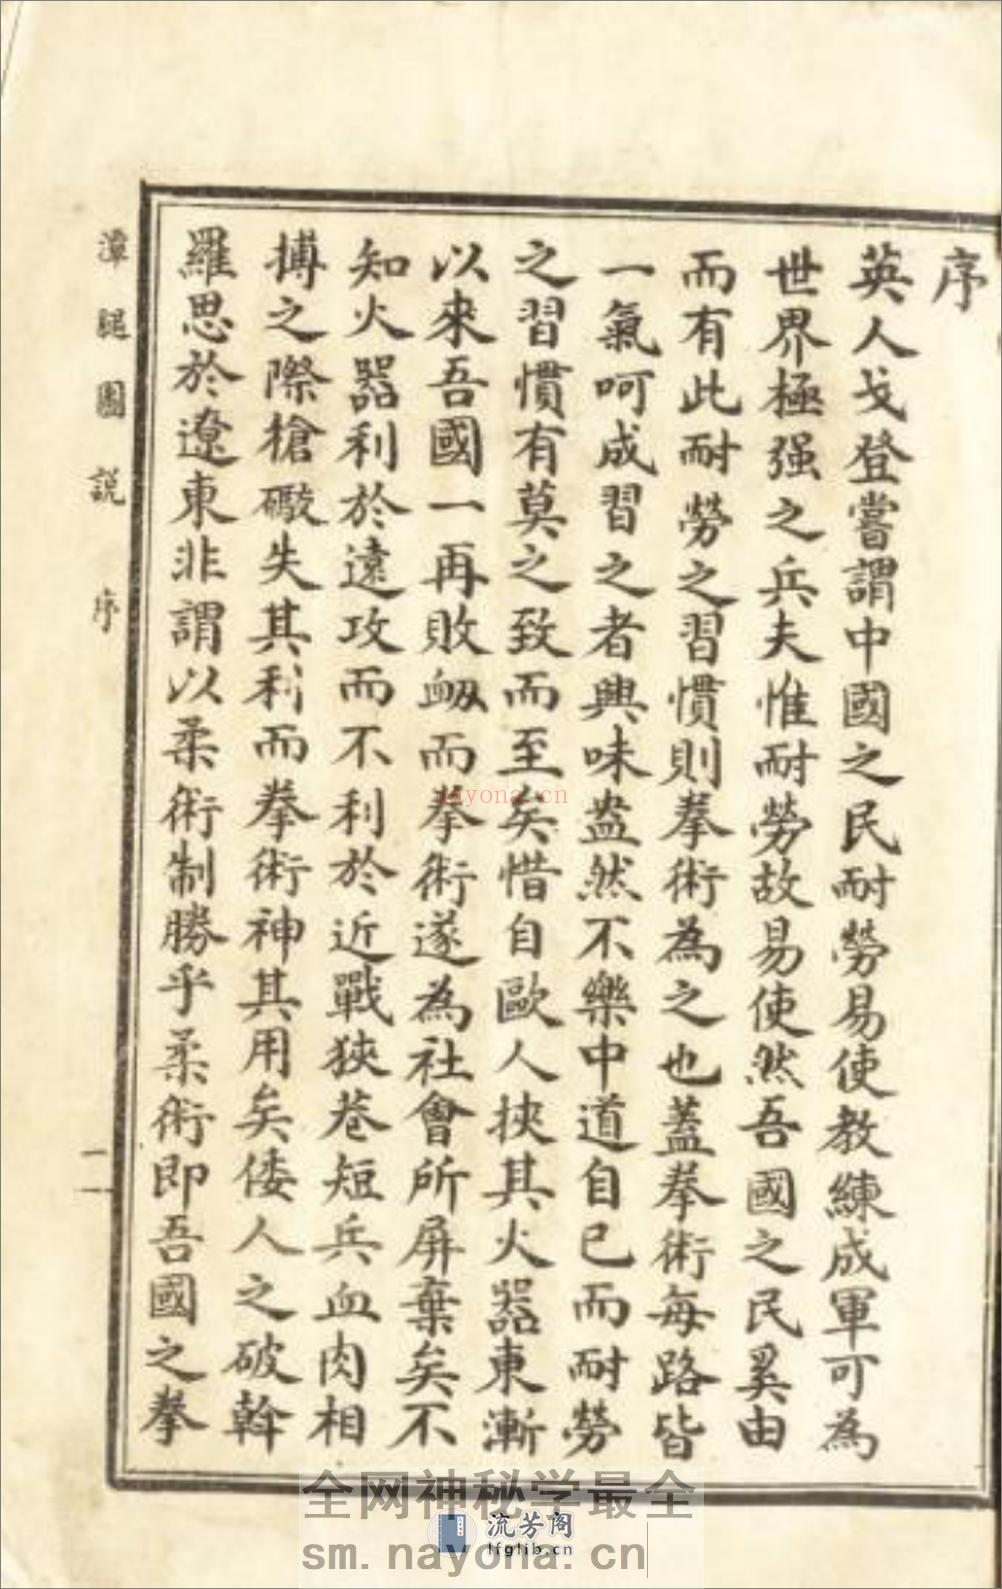 序
英人戈登嘗謂中國之民耐勞易使教練成軍可為
世界極强之兵夫惟耐勞故易使然吾國之民奚由
而有此耐勞之習慣則拳術為之也蓋拳術每路皆
一氣呵成習之者興味盎然不樂中道自已而耐勞
之習慣有莫之致而至矣惜自歐人挾其火器東漸
以來吾國一再敗衂而拳術遂為社會所屏棄矣不
知火器利於遠攻而不利於近戰狹巷短兵血肉相
搏之際槍礮失其利而拳術神其用矣倭人之破斡
羅思於遼東非謂以柔術制勝乎柔術即吾國之拳
潭腿圖說 序
一
nayona.cn
全网神秘学最全
流芳阁
lfglib.cn
sm.nayona.cn